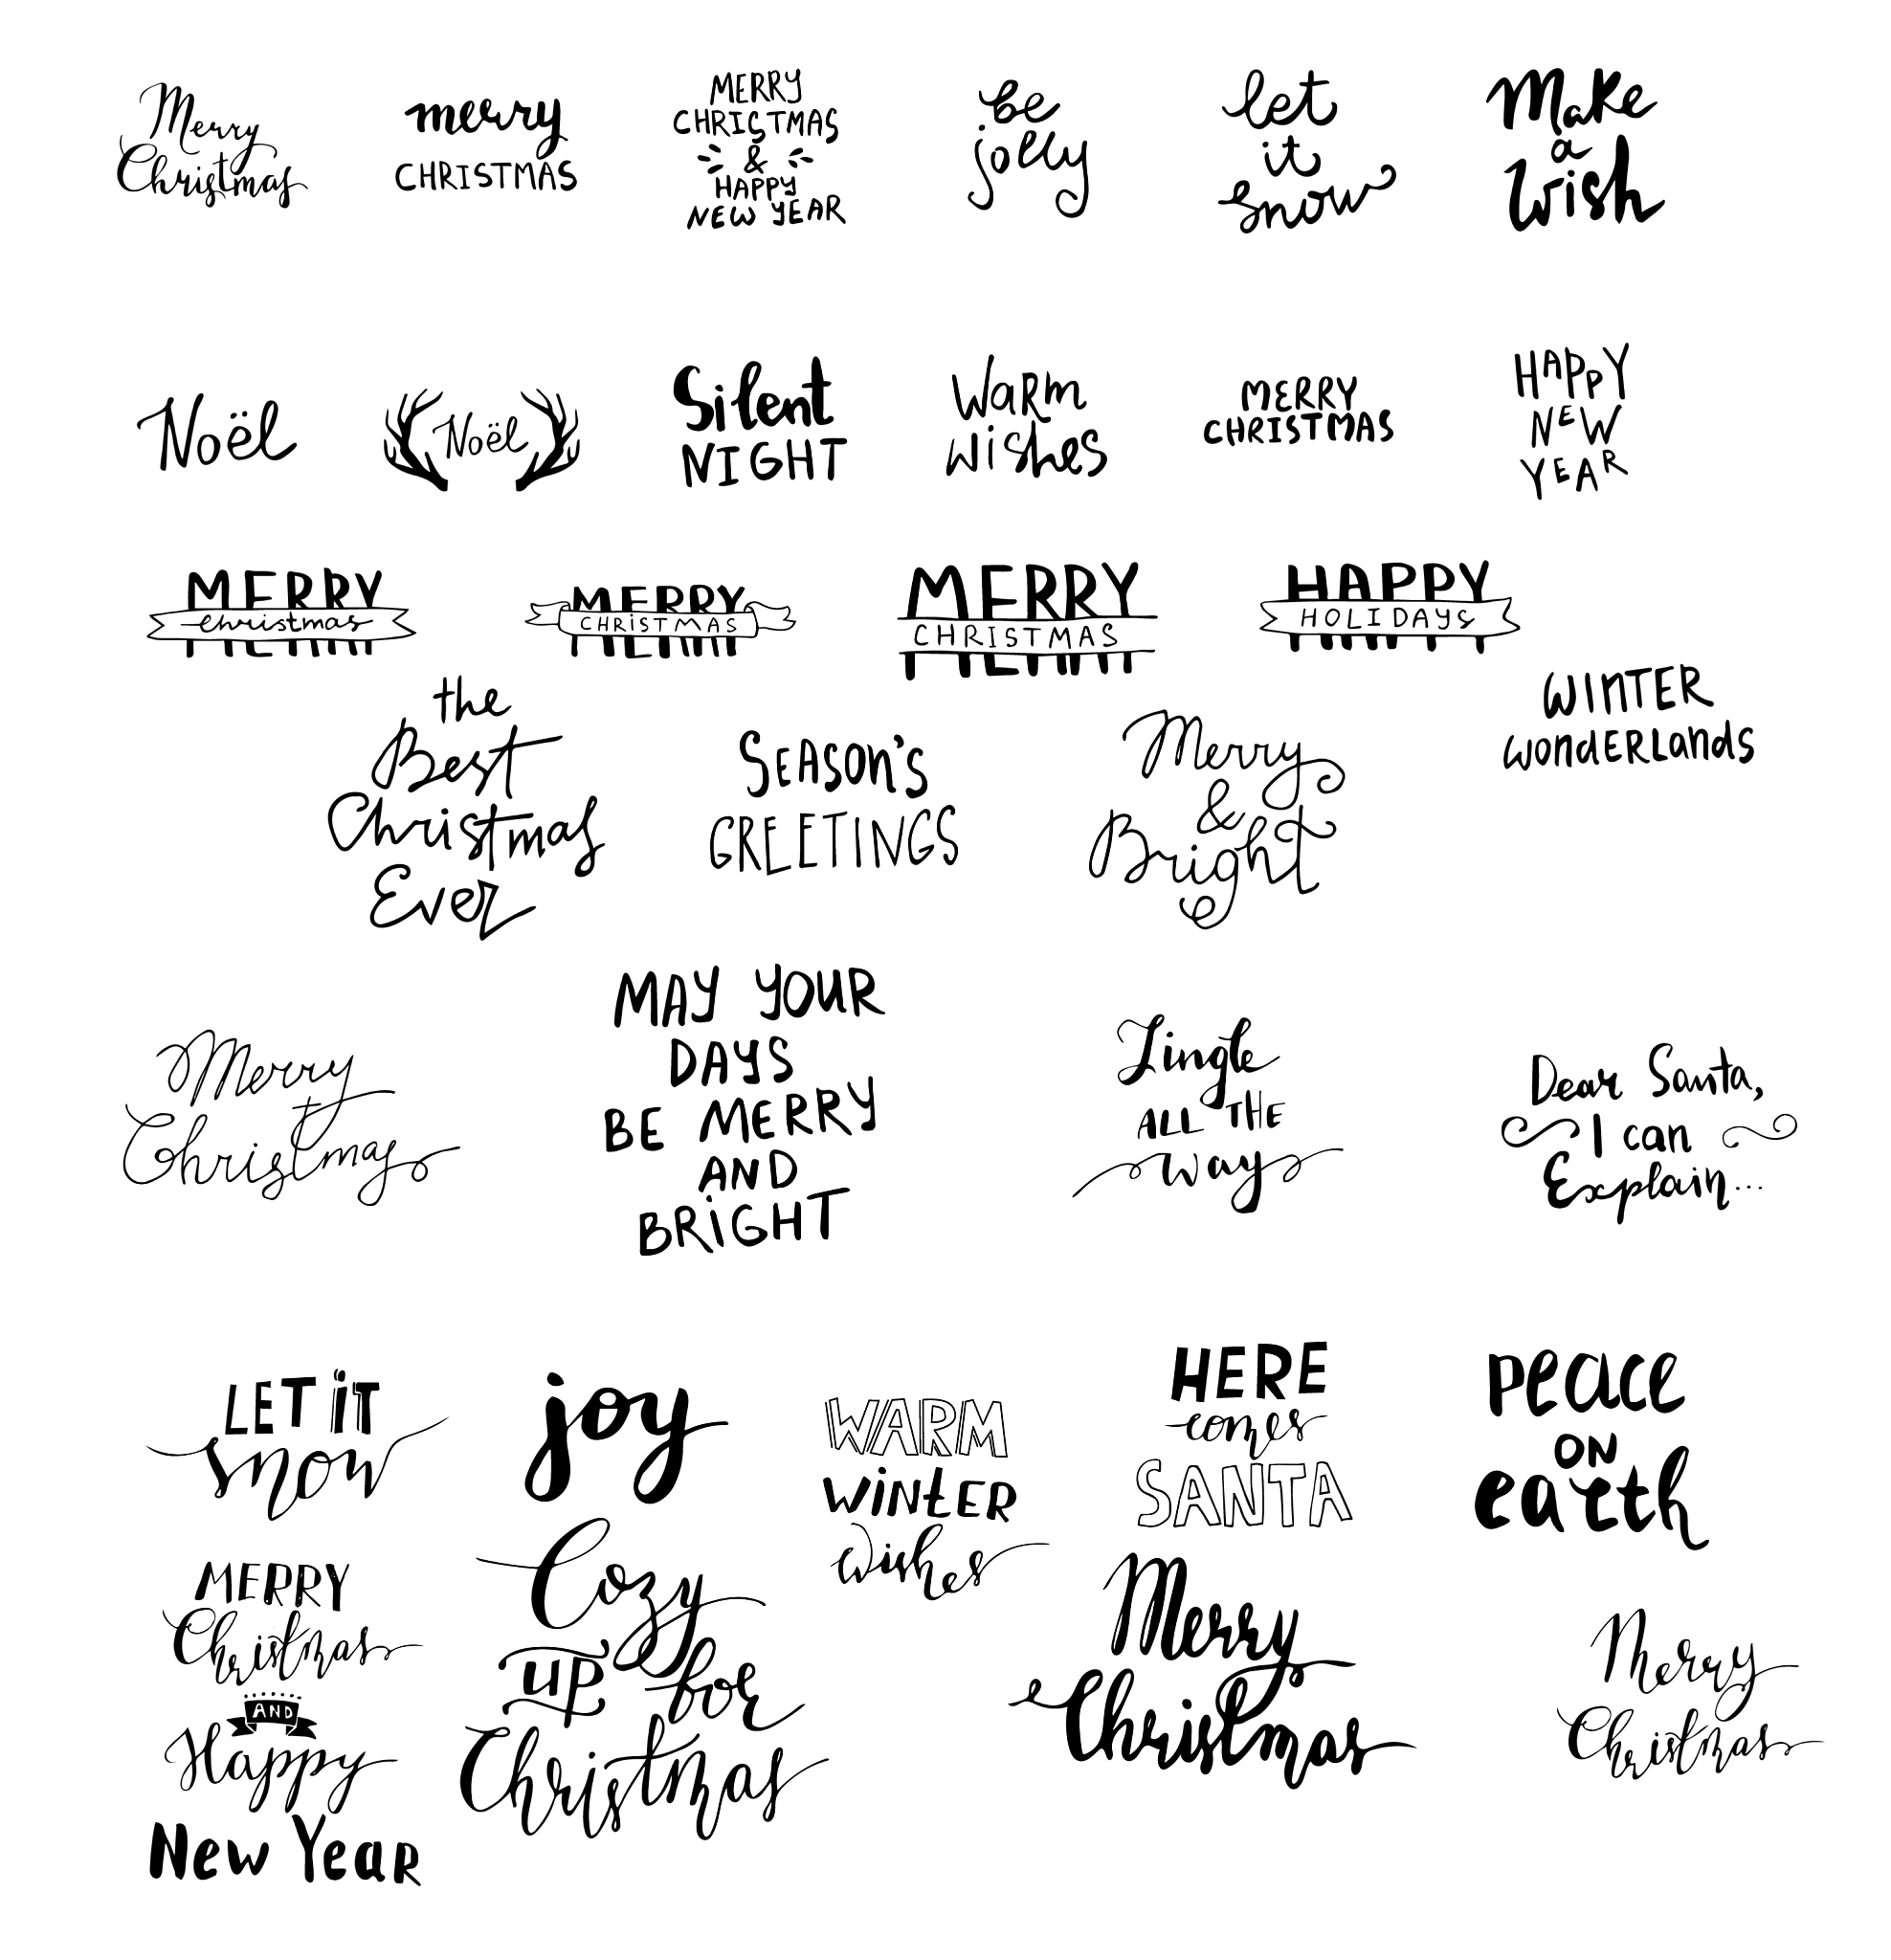 Merry
Christmas
merry
CHRISTMAS
MERRY
CHRISTMAS
&
HAPPY
NEW YEAR
be
jolly
let
it
snow
Make
a
Wish
Noël
Noël
Silent
NIGHT
Warm
Wishes
MERRY
CHRISTMAS
HAPPY
NEW
YEAR
MERRY
christmas
MERRY
CHRISTMAS
MERRY
CHRISTMAS
HAPPY
HOLIDAYS
the
Best
Christmas
Ever
SEASON'S
GREETINGS
Merry
&
Bright
WINTER
wondERLands
Merry
Christmas
MAY YOUR
DAYS
BE MERRY
AND
BRIGHT
Jingle
ALL THE
way
Dear Santa,
I can
Explain...
LET IT
snow
joy
WARM
WINTER
Wishes
HERE
comes
SANTA
Peace
ON
earth
MERRY
Christmas
AND
Happy
New Year
Cozy
up for
Christmas
Merry
Christmas
Merry
Christmas